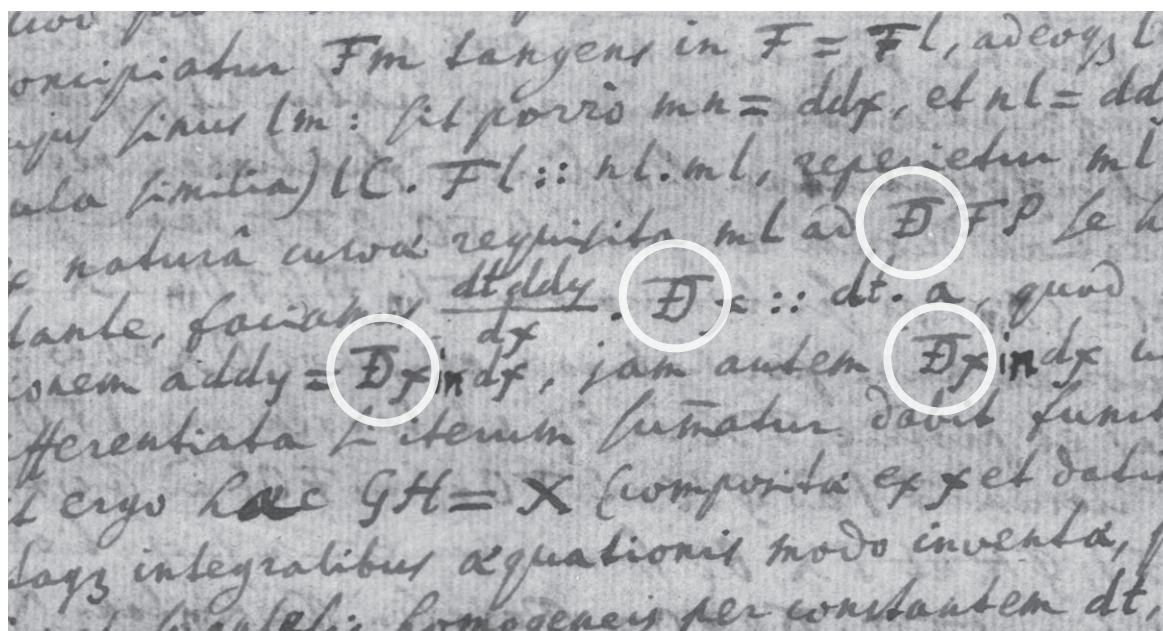 concipiatur Fm tangens in F = Fl, adeoq; l
ujus sinus lm: sit porrò mn = ddx, et nl = dd
ula similia) lC. Fl :: nl. ml, reperietur ml
naturâ curvæ requisita ml ad Đ FP se h
tante, faciamus dtddy/dx. Đx :: dt. a, quod
ionem addy = Đx in dx, jam autem Đx in dx u
ifferentiata iterum sumatur dabit
t ergo hæc GH = X (composita ex x et datis
integralibus æquationis modo inventa,
homogeneis per constantem dt,